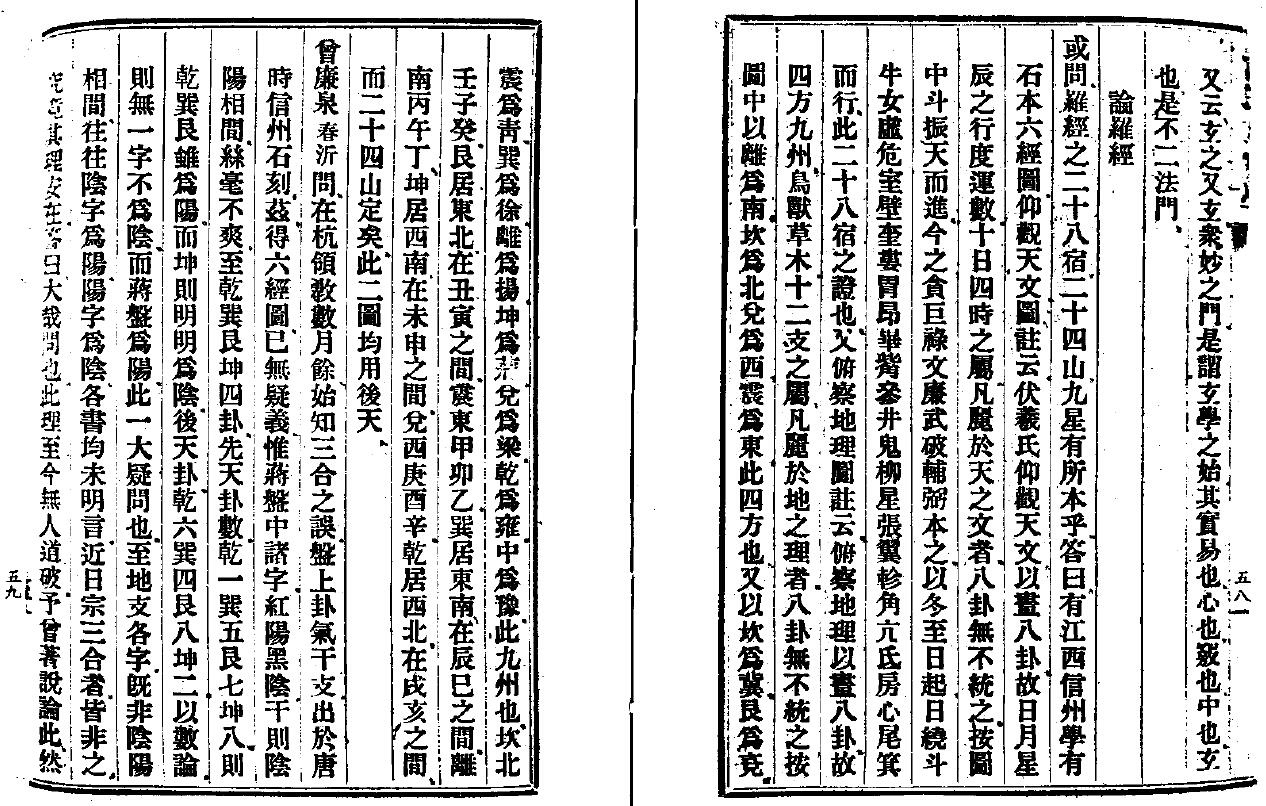 又云玄之又玄衆妙之門是謂玄學之始其實易也心也竅也中也玄
也是不二法門、
論羅經
或問羅經之二十八宿二十四山九星有所本乎答曰有江西信州學有
石本六經圖仰觀天文圖註云伏羲氏仰觀天文以畫八卦故日月星
辰之行度運數十日四時之屬凡麗於天之文者八卦無不統之按圖
中斗振天而進今之貪巨祿文廉武破輔弼本之以冬至日起日繞斗
牛女虛危室壁奎婁胃昴畢觜參井鬼柳星張翼軫角亢氐房心尾箕
而行此二十八宿之證也又俯察地理圖註云俯察地理以畫八卦故
四方九州鳥獸草木十二支之屬凡麗於地之理者八卦無不統之按
圖中以離爲南坎爲北兌爲西震爲東此四方也又以坎爲冀艮爲兗
五八
震爲靑巽爲徐離爲揚坤爲荆兌爲梁乾爲雍中爲豫此九州也坎北
壬子癸艮居東北在丑寅之間震東甲卯乙巽居東南在辰巳之間離
南丙午丁坤居西南在未申之間兌西庚酉辛乾居西北在戌亥之間
而二十四山定矣此二圖均用後天、
曾廉泉春沂問在杭領敎數月餘始知三合之誤盤上卦氣干支出於唐
時信州石刻茲得六經圖已無疑義惟蔣盤中諸字紅陽黑陰干則陰
陽相間絲毫不爽至乾巽艮坤四卦先天卦數乾一巽五艮七坤八則
乾巽艮雖爲陽而坤則明明爲陰後天卦乾六巽四艮八坤二以數論
則無一字不爲陰而蔣盤爲陽此一大疑問也至地支各字旣非陰陽
相間往往陰字爲陽陽字爲陰各書均未明言近日宗三合者皆非之
究竟其理安在答曰大哉問也此理至今無人道破予曾著說論此然
五九